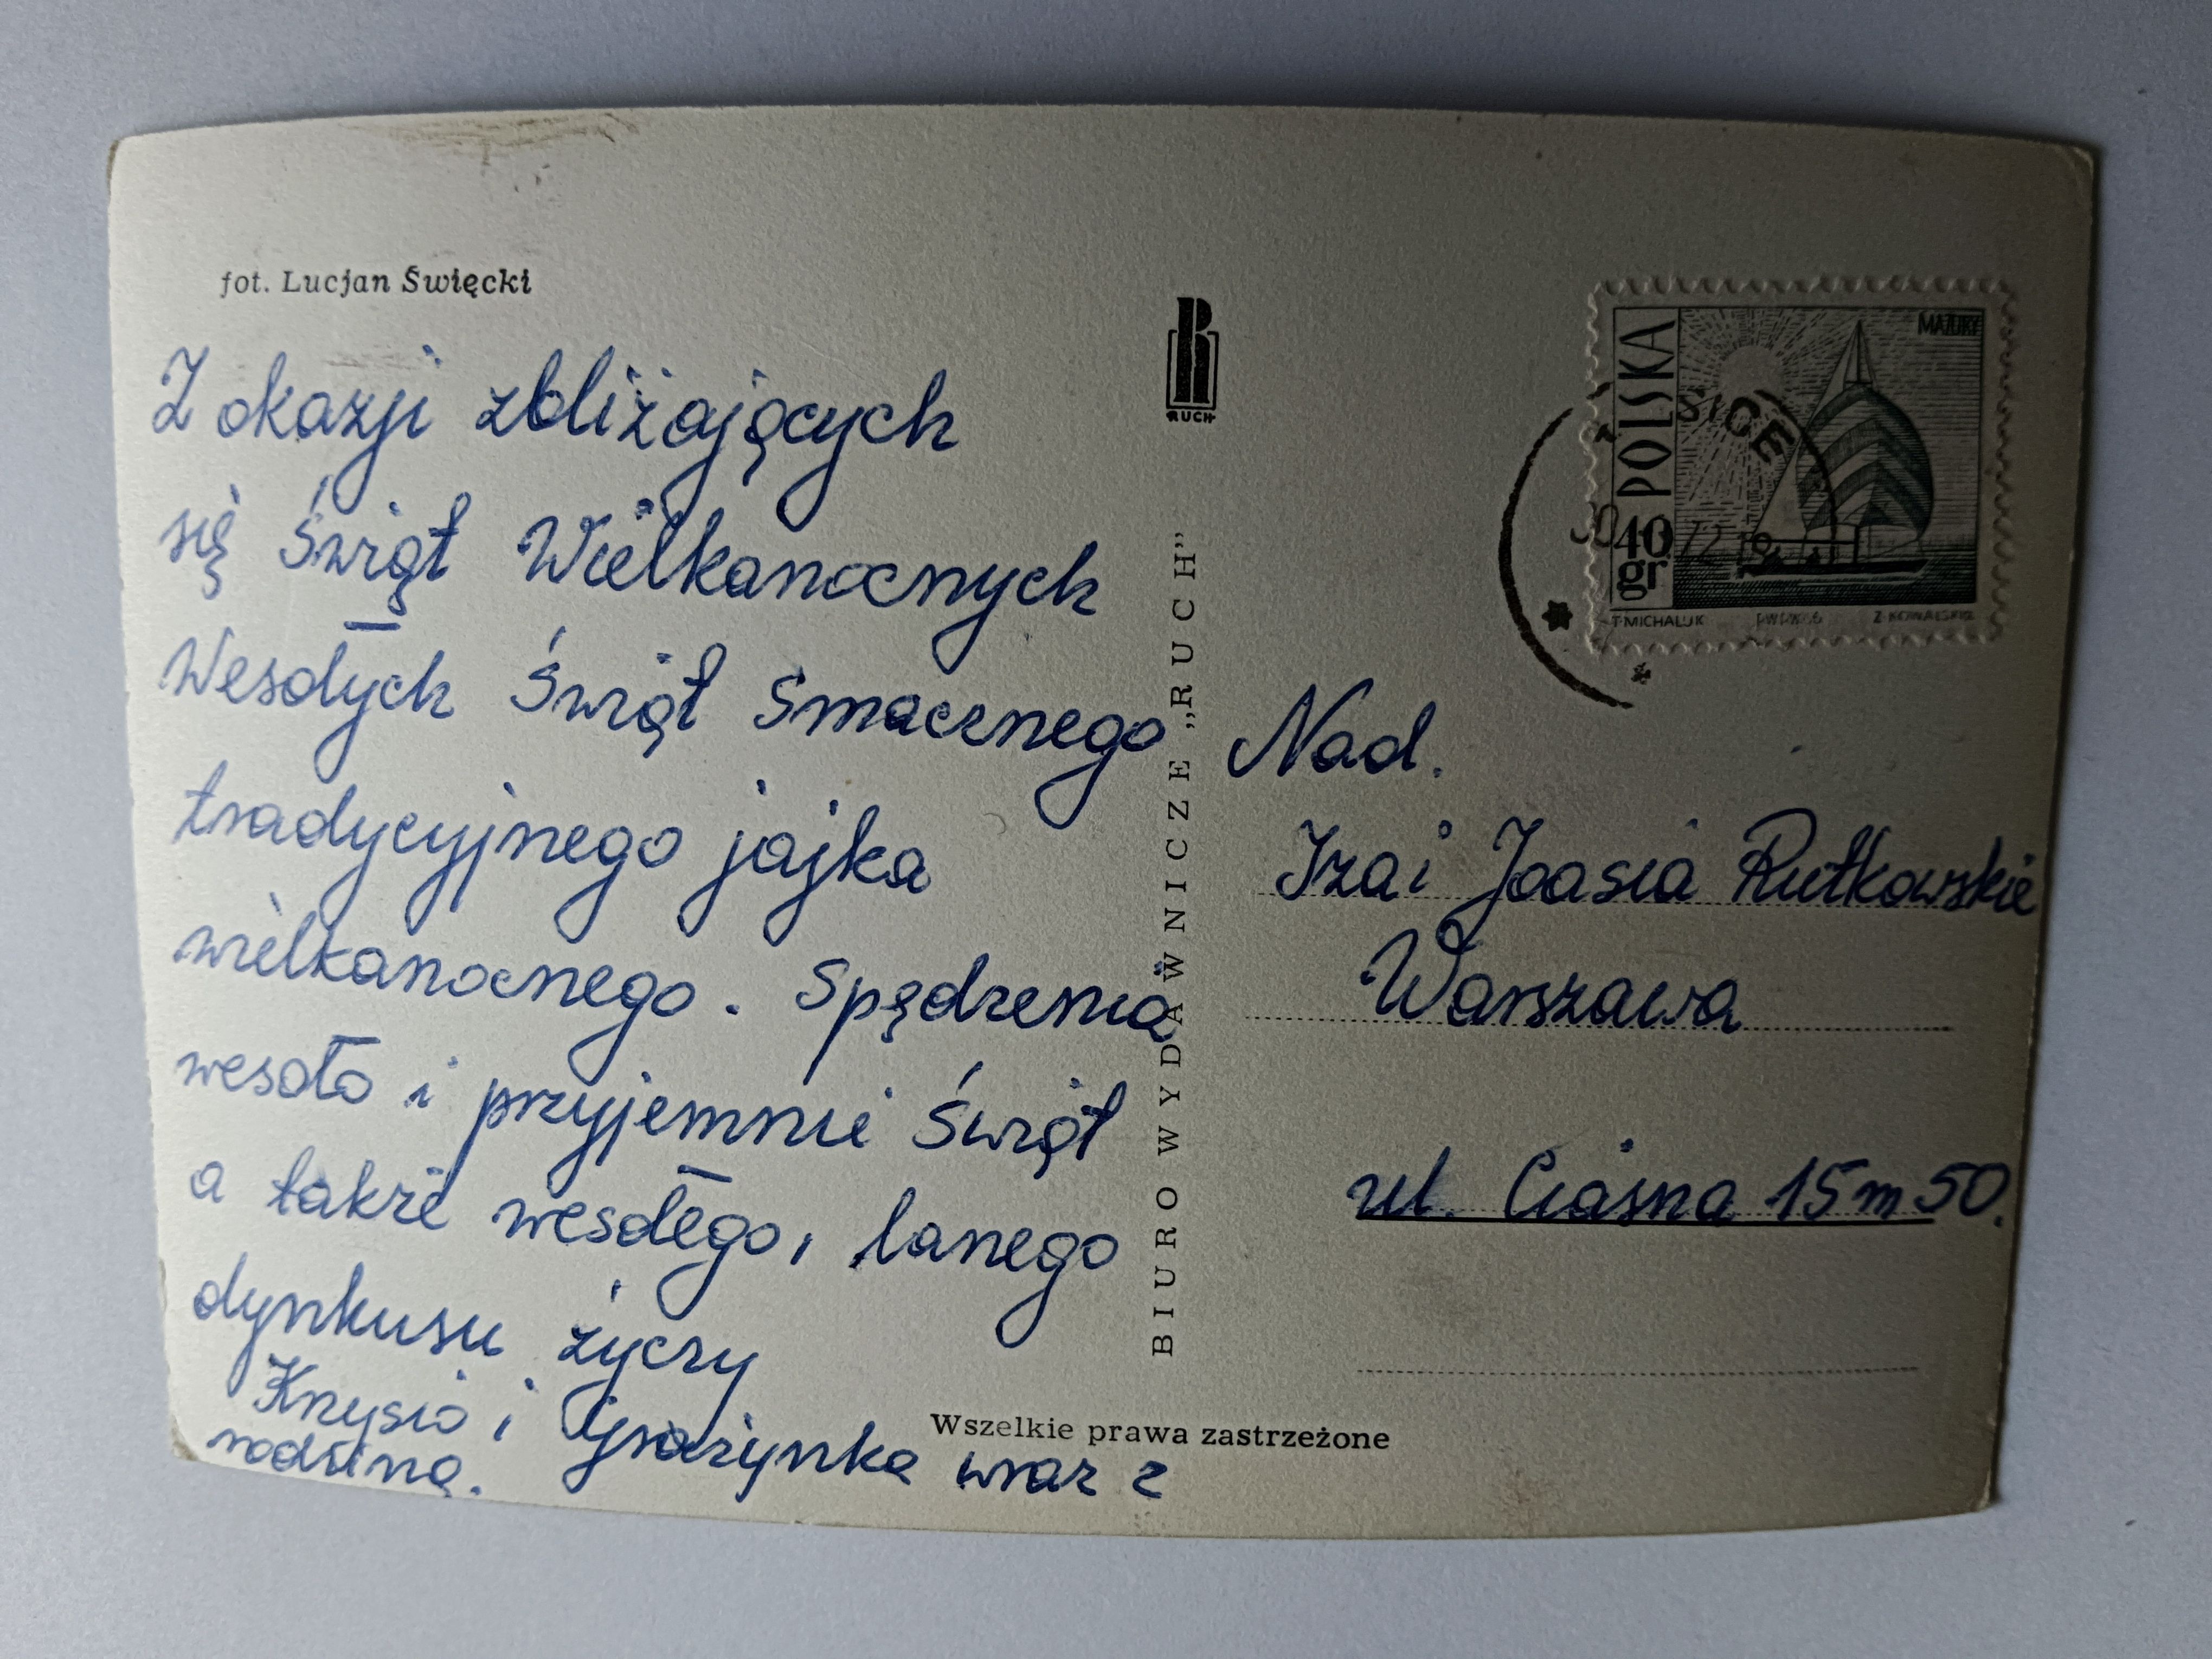 fot. Lucjan Święcki
Z okazji zbliżających
się Świąt Wielkanocnych
Wesołych Świąt Smacznego
tradycyjnego jajka
wielkanocnego. Spędzenia
wesoło i przyjemnie Świąt
a także wesołego, lanego
dynkusu życzy
Krysia i Grażynka wraz z
rodziną.
RUCH
BIURO WYDAWNICZE „RUCH”
Wszelkie prawa zastrzeżone
POLSKA
MAZURY
40
gr
T. MICHALUK PWPW 66 Z. KOWALSKI
Nad.
Iza i Joasia Rutkowskie
Warszawa
ul. Ciasna 15 m 50.